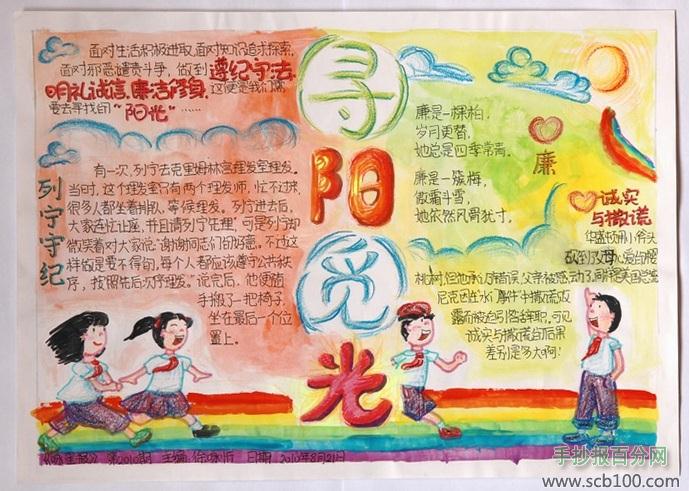 面对生活积极进取,面对知识追求探索,
面对邪恶谴责斗争,做到遵纪守法、
明礼诚信、廉洁修身,这便是我们需
要去寻找的“阳光”……
寻
阳
觅
光
列宁守纪
有一次,列宁去克里姆林宫理发室理发。
当时,这个理发室只有两个理发师,忙不过来,
很多人都坐着排队,等候理发。列宁进去后,
大家连忙让座,并且请列宁先理,可是列宁却
微笑着对大家说:“谢谢同志们的好意。不过这
样做是要不得的,每个人都应该遵守公共秩
序,按照先后次序理发。”说完后,他便随
手搬了一把椅子,
坐在最后一个位
置上。
廉是一棵柏,
岁月更替,
她总是四季常青。
廉是一簇梅,
傲霜斗雪,
她依然风骨犹寸。
廉
诚实
与撒谎
华盛顿用小斧头
砍到了父母心爱的樱
桃树,但他承认了错误,父亲被感动了,
尼克因在“水门”事件中撒谎败
露而被迫引咎辞职,可见
诚实与撒谎的后果
差别是多大啊!
第2010期 主编: 日期:2010年8月21日
手抄报百分网
www.scb100.com